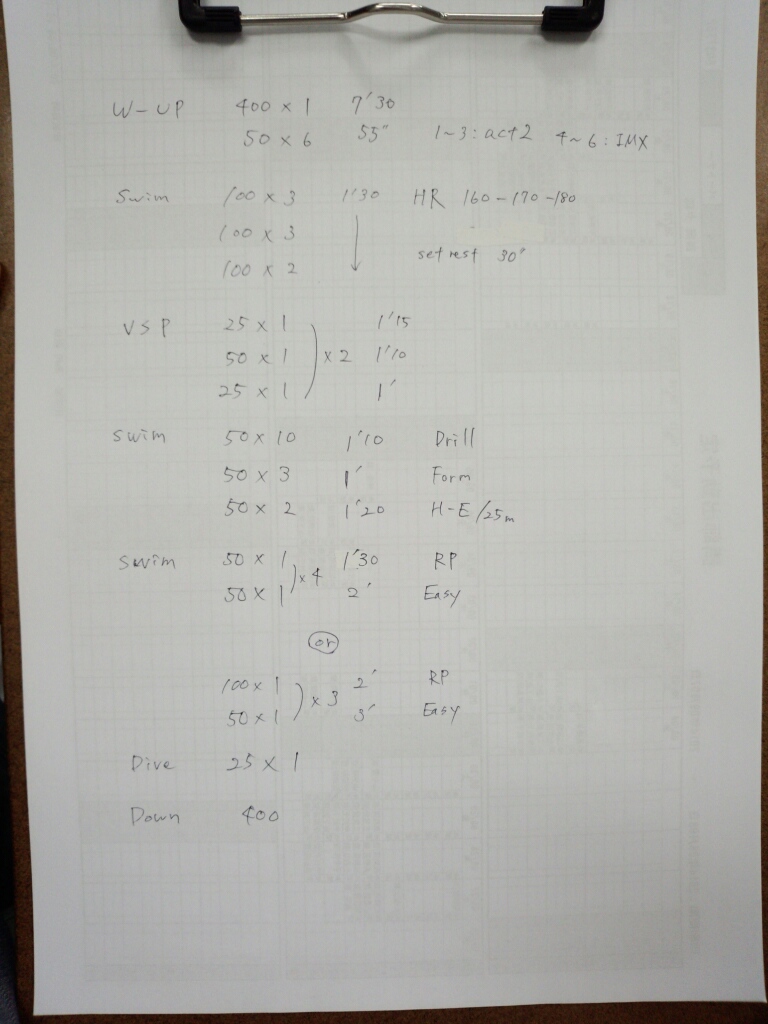 W-UP 400 × 1 7'30
50 × 6 55" 1~3:act2 4~6:IMX
Swim 100 × 3 1'30 HR 160-170-180
100 × 3
100 × 2 set rest 30"
VSP 25 × 1 1'15
50 × 1 ×2 1'10
25 × 1 1'
swim 50 × 10 1'10 Drill
50 × 3 1' Form
50 × 2 1'20 H-E/25m
Swim 50 × 1 1'30 RP
50 × 1 ×4 2' Easy
or
100 × 1 2' RP
50 × 1 ×3 3' Easy
Dive 25 × 1
Down 400